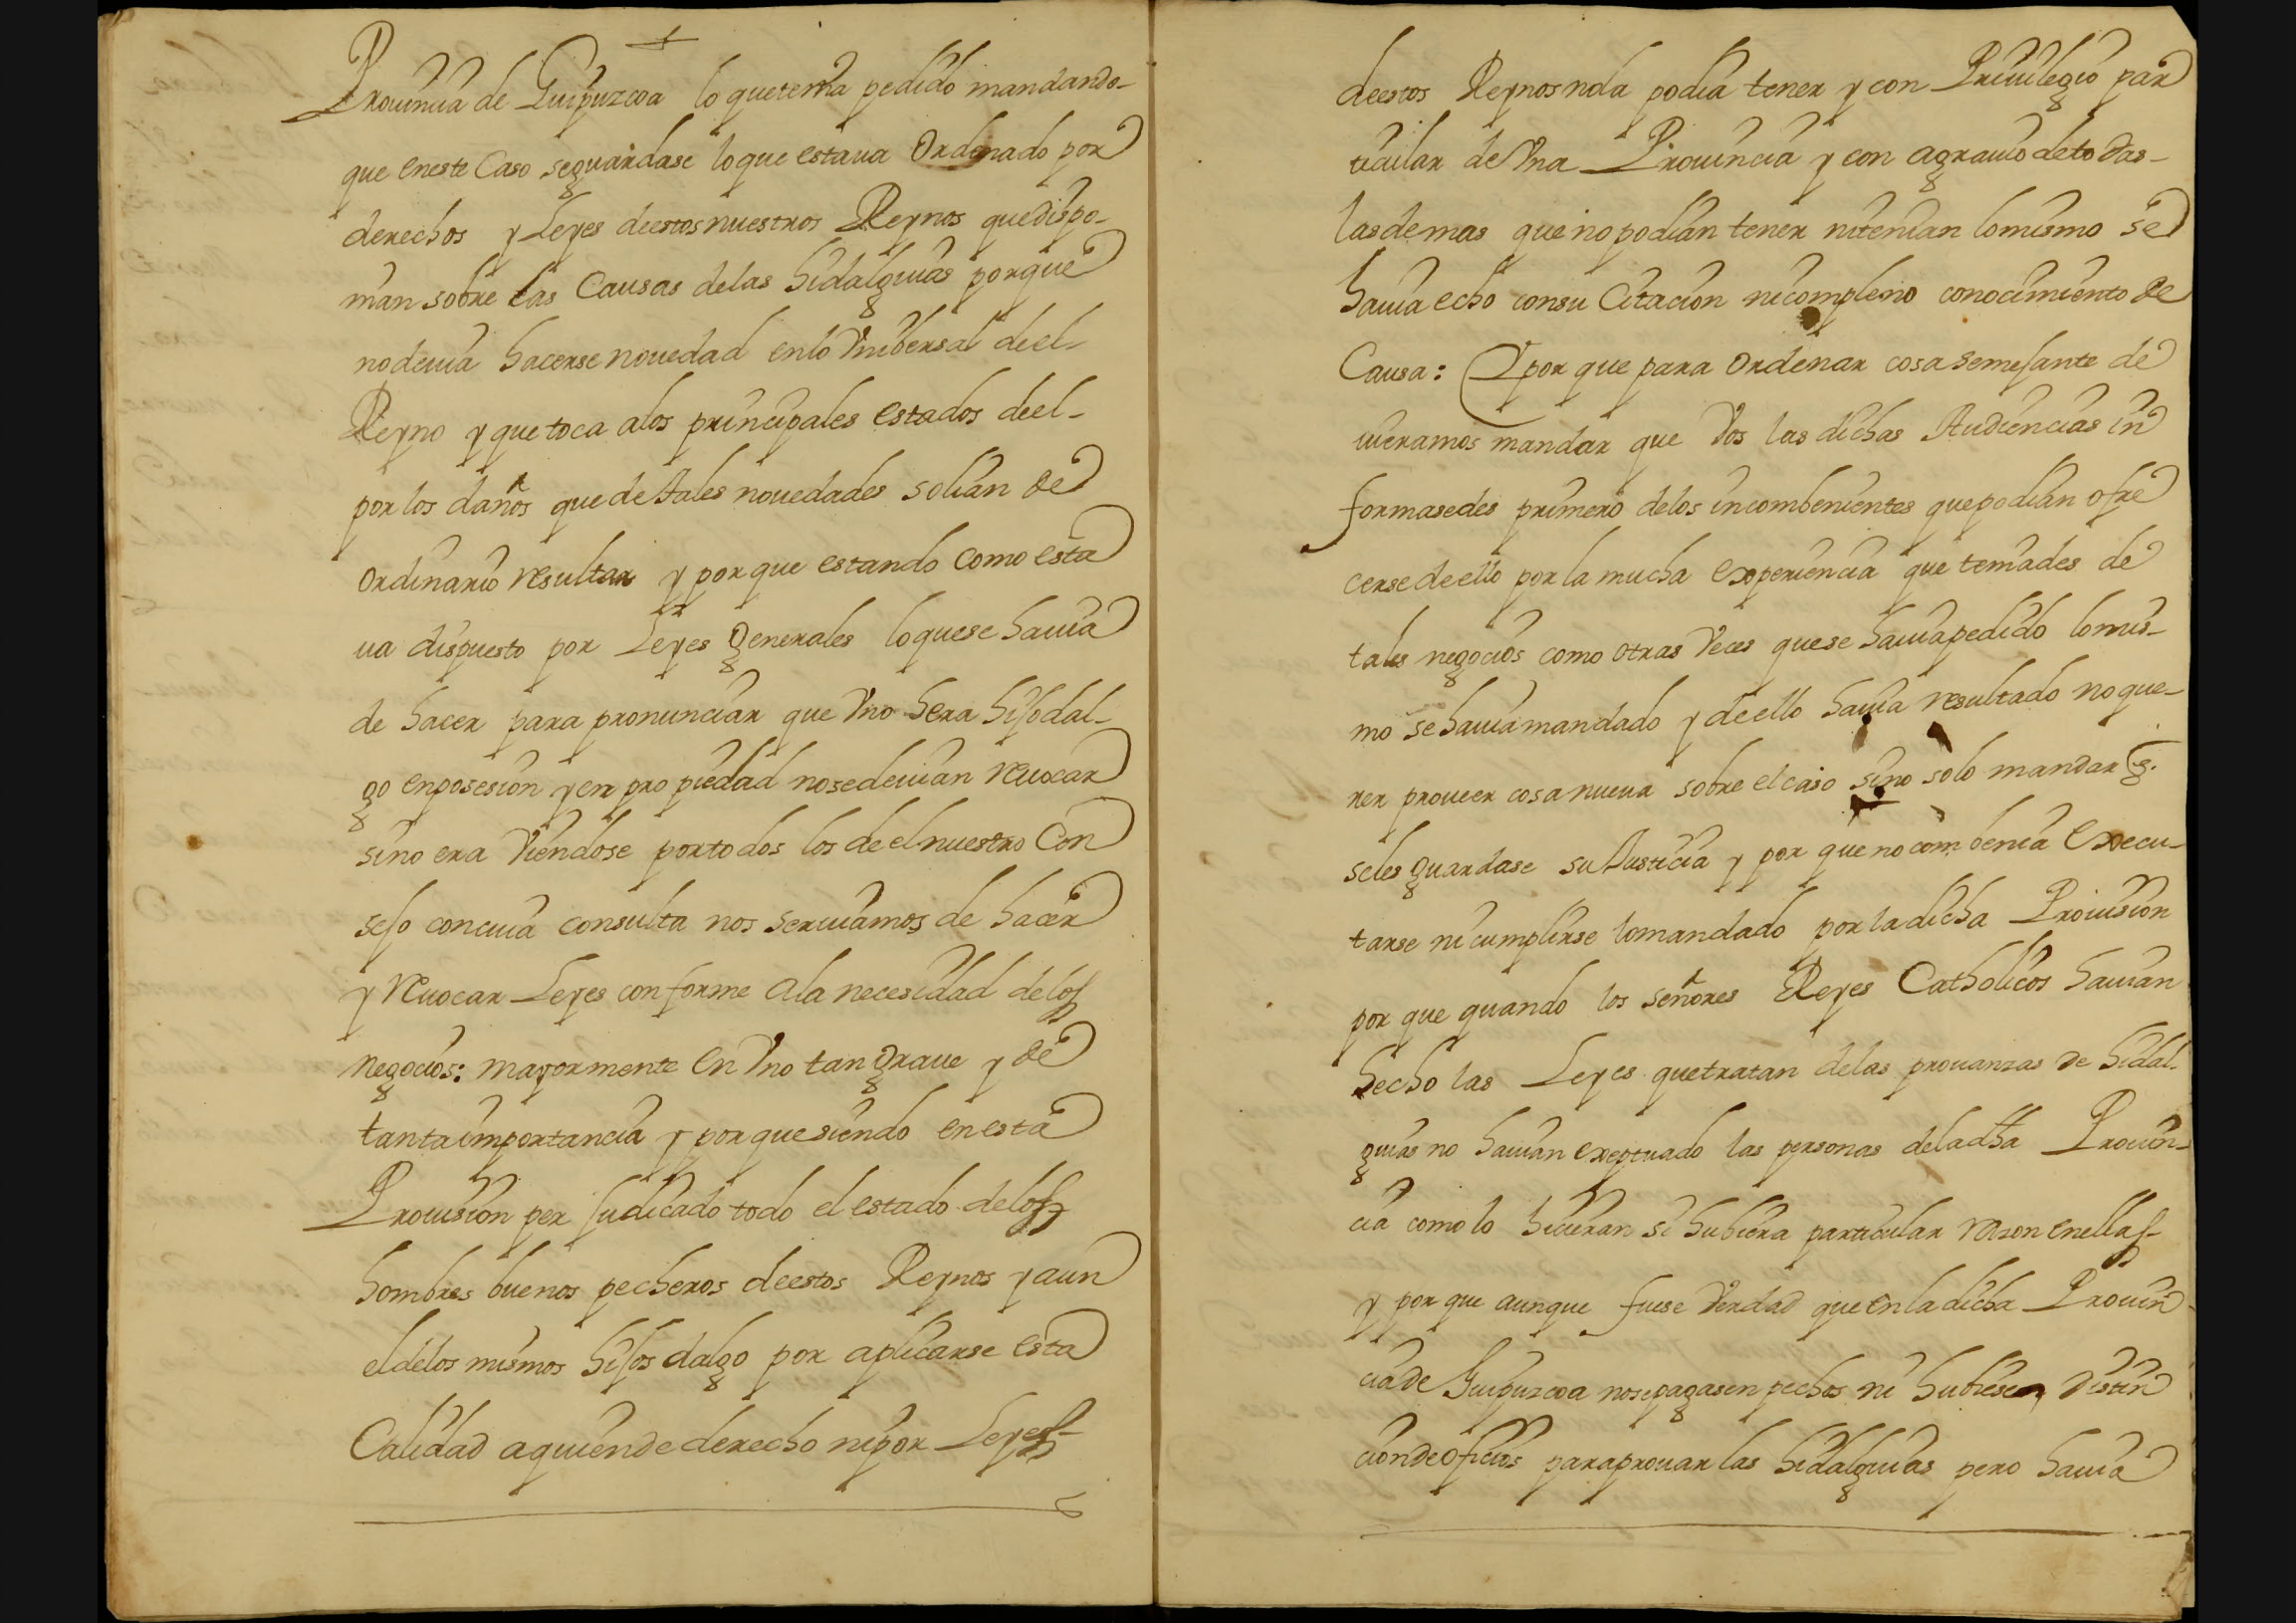 Prouinçia de Guipuzcoa lo que tenia pedido mandando-
que eneste Caso seguardase loque estaua Ordenado por
derechos y Leyes deestosnuestros Reynos quedispo-
nian sobre las Causas delas hidalguias porque
nodeuia hacerse nouedad enlo Vnibersal deel-
Reyno y que toca alos principales estados deel-
por los daños que de tales nouedades solian de
ordinario resultar y por que estando como esta
ua dispuesto por Leyes Generales loquese hauia
de hacer para pronunciar que Vno hera hijodal-
go enposesion y en propiedad nosedeuian reuocar
sino era Viendose portodos los de elnuestro Con
sejo concuia consulta nos seruiamos de hacer
y reuocar Leyes conforme a la necesidad delos
negocios: mayormente en Vno tan graue y de
tantaimportancia y porquesiendo enesta
Prouision perjudicado todo el estado delos
hombres buenos pecheros deestos Reynos y aun
eldelos mismos hijos dalgo por aplicarse esta
Calidad aquiende derecho nipor Leyes-
deestos Reynos nola podia tener y con Priuilegio par
ticular de Vna Prouincia y con agrauio detodas-
lasdemas que nopodian tener nitenian lomismo se
hauia echo consu Citacion niconpleno conocimiento de
Causa: Y por que para ordenar cosa semejante de
uieramos mandar que Vos las dichas Audiencias in
formasedes primero delos incombenientes quepodian ofre
cersedeello por la mucha experiencia que teniades de
tales negocios como otras Veces quese hauiapedido lomis-
mo se hauiamandado y deello hauia resultado noque-
rer proueer cosanueua sobre elcaso sino solo mandar q.
seles guardase suJusticia y por que nocombenia Execu-
tarse ni cumplirse lomandado por ladicha Prouision
por que quando los señores Reyes Catholicos hauian
hecho las Leyes quetratan delas prouanzas de hidal-
guias no hauian exeptuado las personas deladha Prouin-
cia como lo hicieran si hubiera particular razon enellas-
y por que aunque fuese Verdad que enladicha Prouin
ciade Guipuzcoa nosepagasen pechos ni hubiesen distin
ciondeoficios paraprouar las hidalguias pero hauia